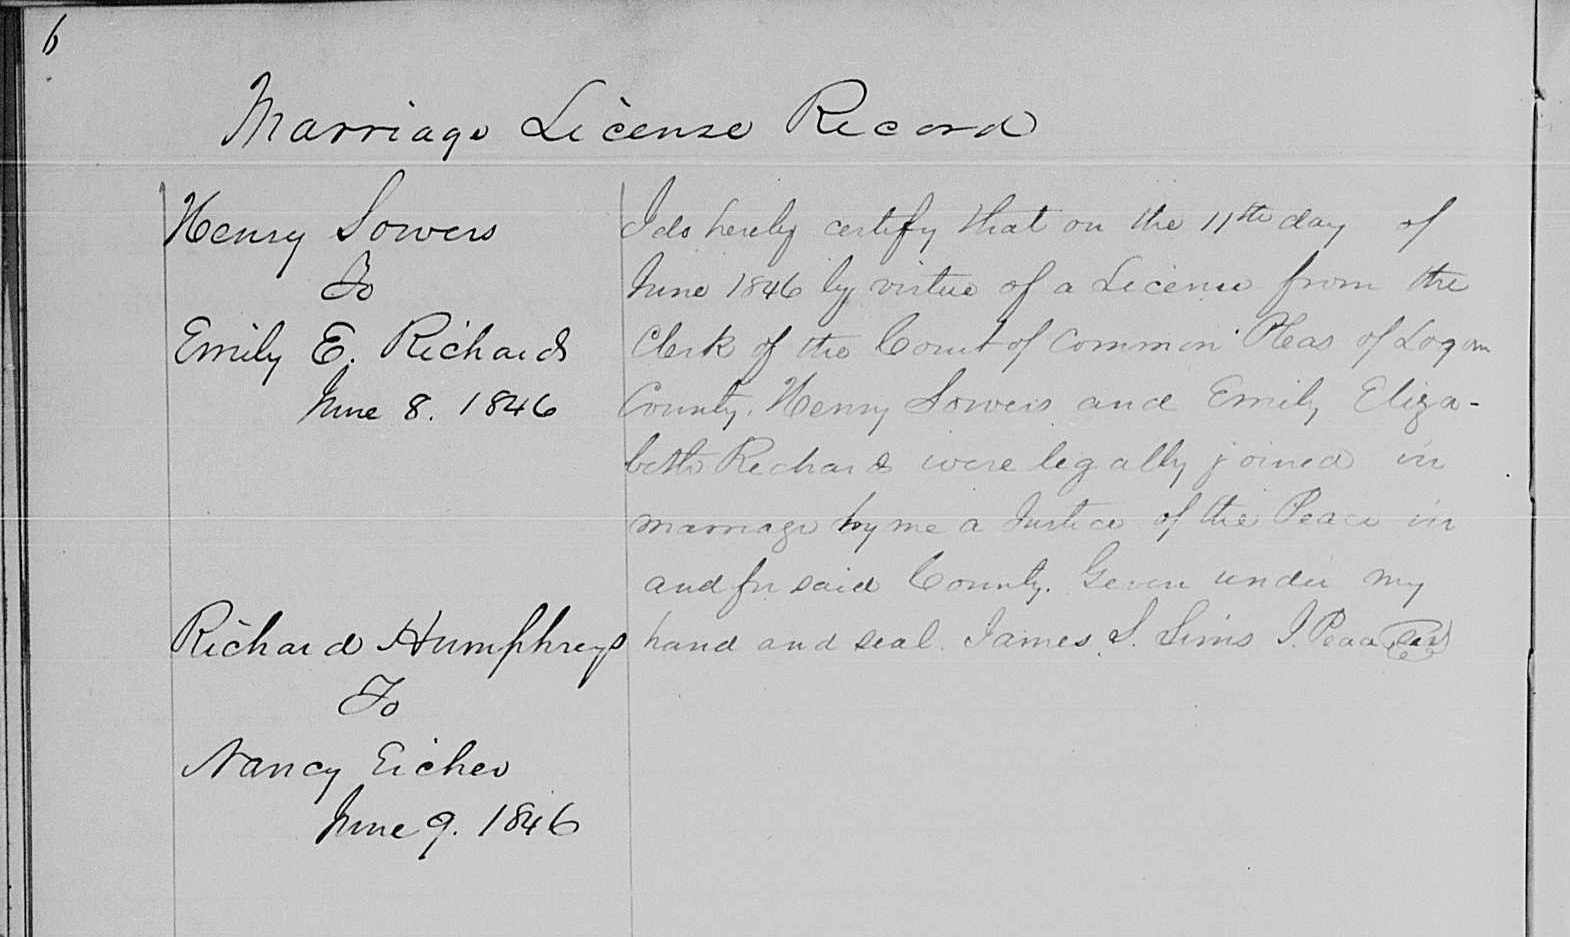 6
Marriage License Record
Henry Sowers
To
Emily E. Richards
June 8. 1846
I do hereby certify that on the 11th day of
June 1846 by virtue of a License from the
Clerk of the Court of Common Pleas of Logan
County. Henry Sowers and Emily Eliza-
beth Richards were legally joined in
marriage by me a Justice of the Peace in
and for said County. Given under my
hand and seal. James S. Sims J. Peace Seal
Richard Humphreys
To
Nancy Eicher
June 9. 1846